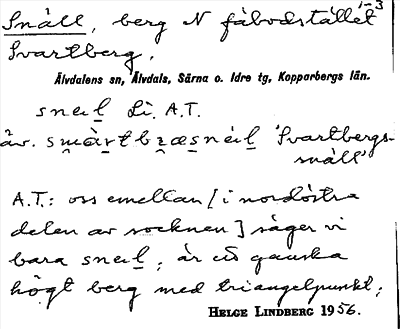 Snäll, berg N fäbodstället 1-3
Svartberg.
Älvdalens sn, Älvdals, Särna o. Idre tg, Kopparbergs län.
snɛıl Li. A.T.
äv. 'Svartbergs-
snäll'
A.T.: oss emellan [i nordöstra
delen av socknen] säger vi
bara snɛıl; är ett ganska
högt berg med triangelpunkt;
HELGE LINDBERG 1956.